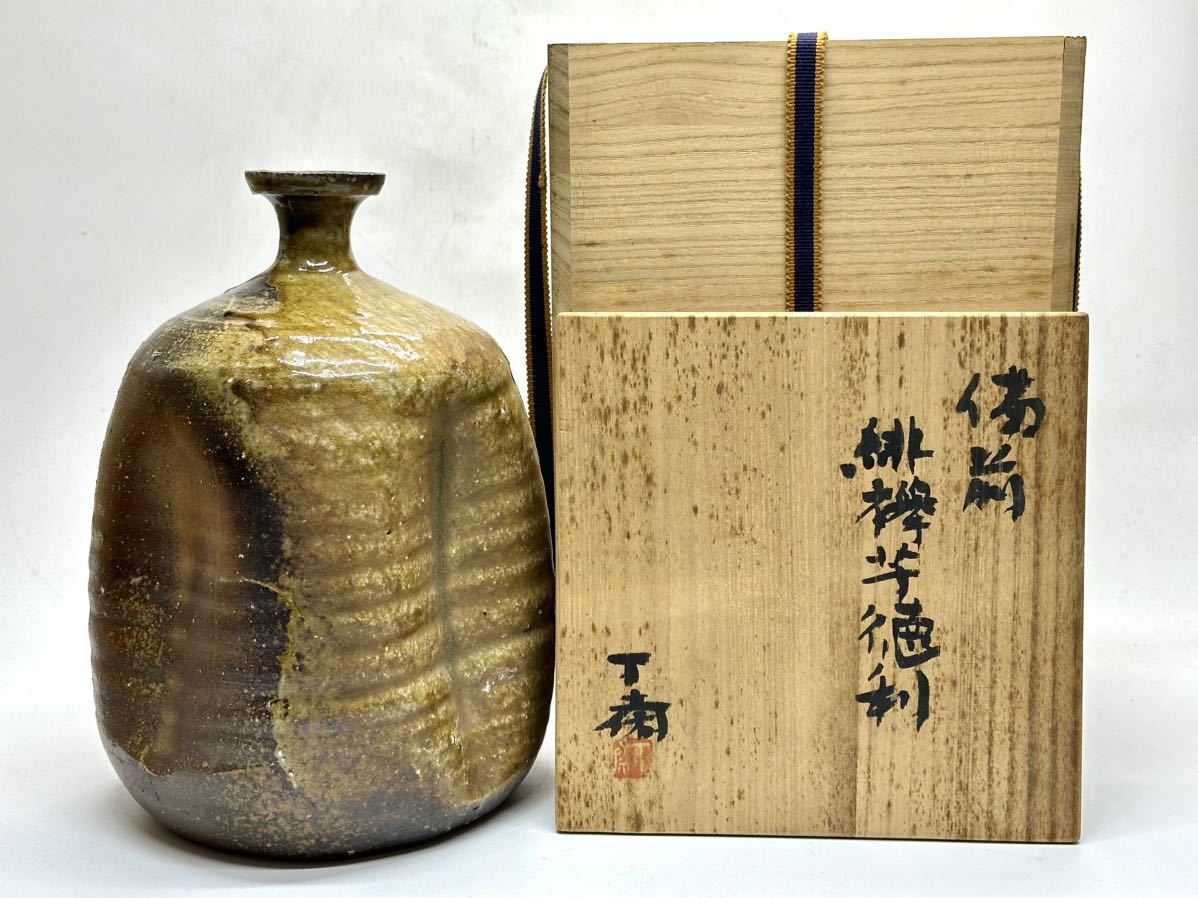 備前
緋襷芋徳利
丁斎